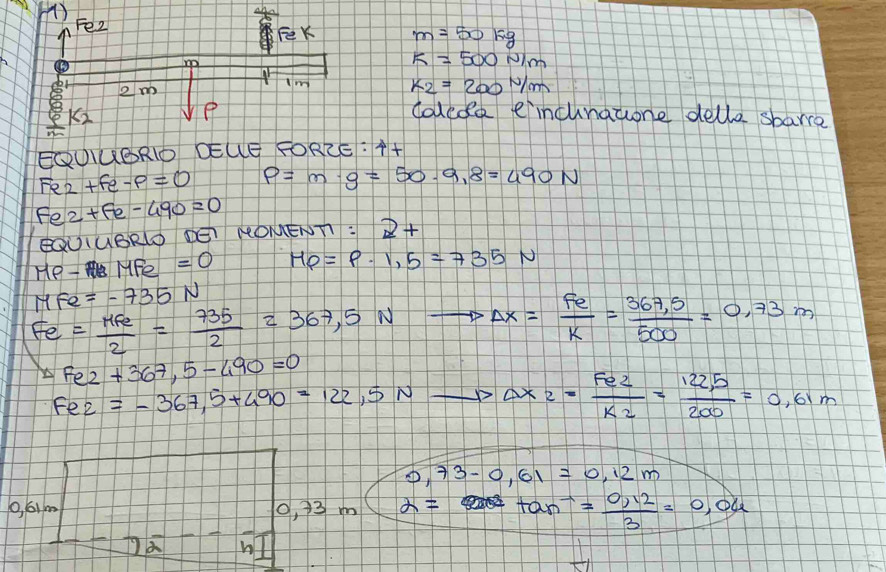 1)
Fe2
Fe K
m
2m
1m
K2
P
m = 50 Kg
K = 500 N/m
K2 = 200 N/m
Calcola l'inclinazione della sbarra
EQUILIBRIO DELLE FORZE: ↑+
Fe2 + Fe - P = 0 P = m · g = 50 · 9,8 = 490 N
Fe2 + Fe - 490 = 0
EQUILIBRIO DEI MOMENTI: +
MP - MFe = 0 MP = P · 1,5 = 735 N
MFe = -735 N
Fe = MFe/2 = 735/2 = 367,5 N → Δx = Fe/K = 367,5/500 = 0,73 m
Fe2 + 367,5 - 490 = 0
Fe2 = -367,5 + 490 = 122,5 N → Δx2 = Fe2/K2 = 122,5/200 = 0,61 m
0,73 - 0,61 = 0,12 m
0,61m
0,73 m
α = tan⁻ = 0,12/3 = 0,04
α